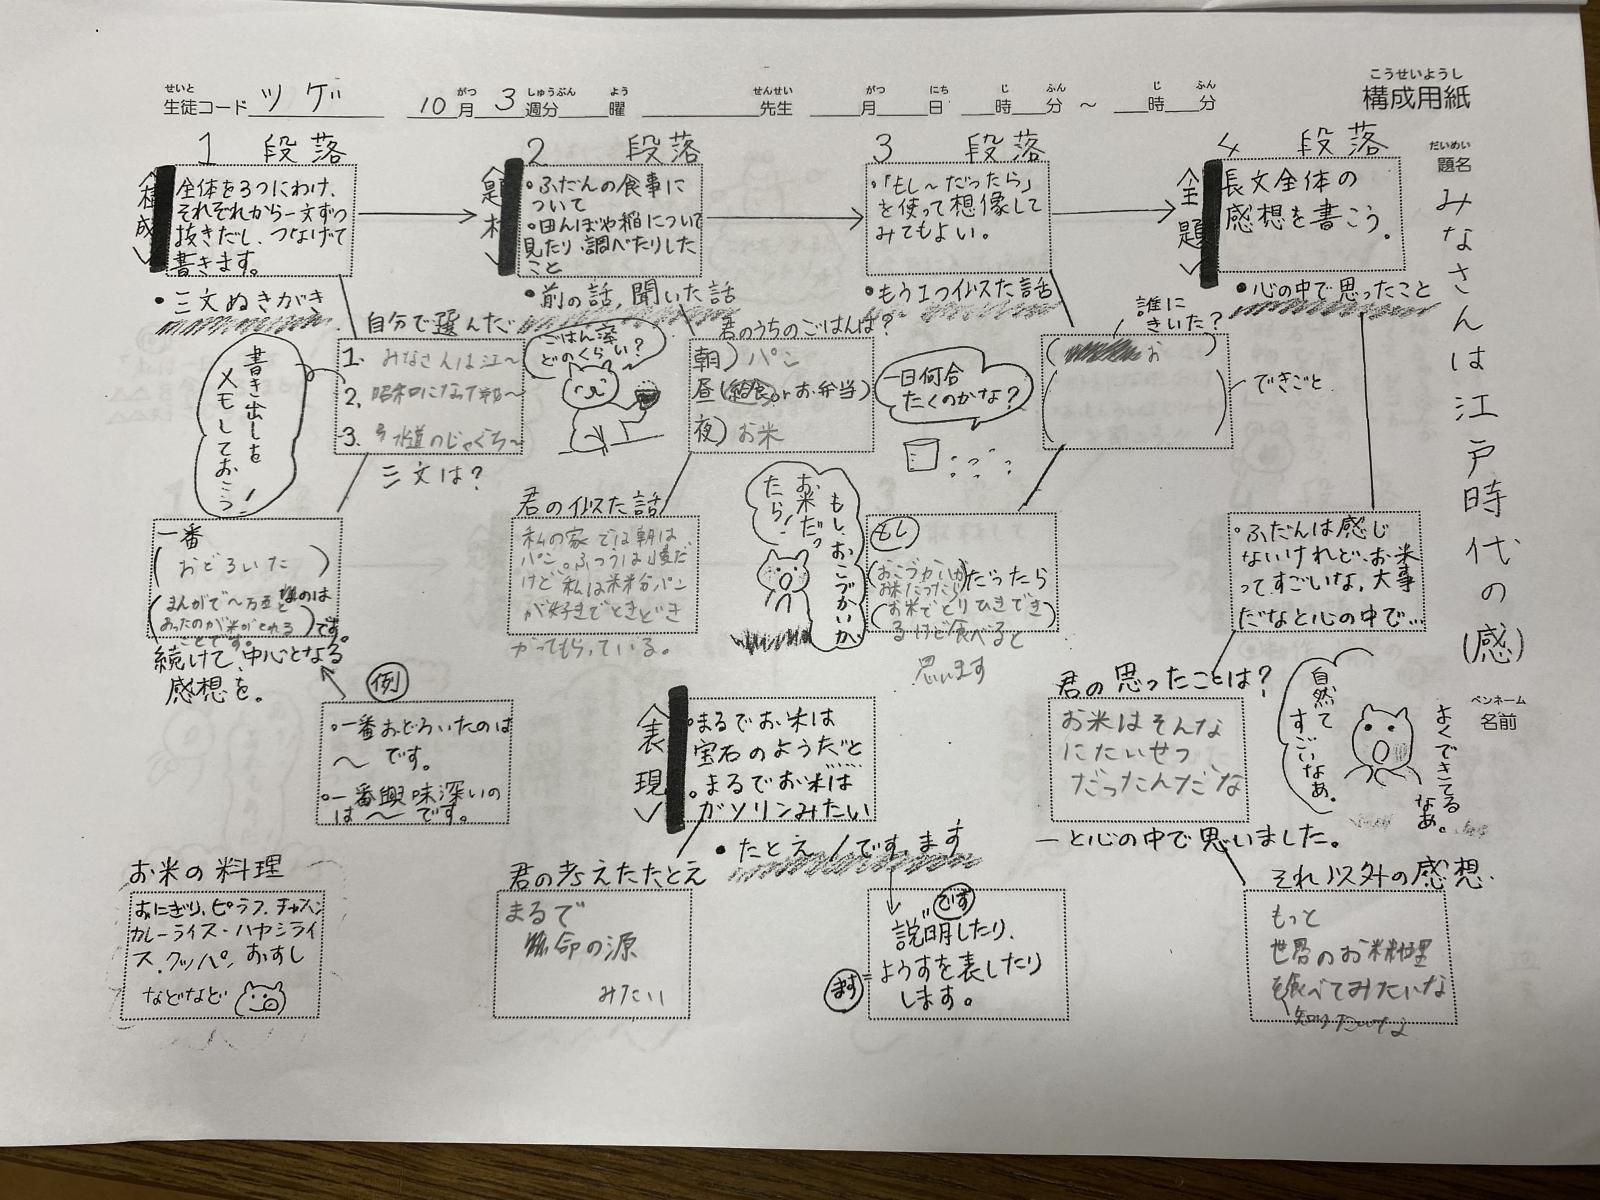 こうせいようし
構成用紙
せいと
生徒コード ツゲ
がつ しゅうぶん よう
10月 3週分 曜
せんせい
先生
がつ にち じ ふん じ ふん
月 日 時 分 ～ 時 分
だいめい
題名
みなさんは江戸時代の(感)
ペンネーム
名前
1 段落
<構成>
全体を3つにわけ、
それぞれから一文ずつ
抜きだし、つなげて
書きます。
・三文ぬきがき
自分で選んだ
1. みなさんは江～
2. 昭和になって
3. 水道のじゃぐち～
三文は?
書き出しを
メモしておこう!
一番
(おどろいた)
なのは
(まんがで～万石と
あったのが米がとれる
ことです。)です。
続けて、中心となる
感想を。
例
・一番おどろいたのは
～です。
・一番興味深いの
は～です。
お米の料理
おにぎり、ピラフ、チャーハン
カレーライス・ハヤシライ
ス、クッパ、おすし
などなど
2 段落
<題材>
・ふだんの食事に
ついて
・田んぼや稲について
見たり、調べたりした
こと
・前の話,聞いた話
ごはん茶
どのくらい?
君のうちのごはんは?
朝)パン
昼(給食orお弁当)
夜)お米
君の似た話
私の家では朝は
パン。ふつうは
だけど、私は米粉パン
が好きでときどき
かってもらっている。
<表現>
・まるでお米は
宝石のようだと
・まるでお米は
ガソリンみたい
・たとえ/です、ます
君の考えたたとえ
まるで
命の源
みたい
です
説明したり、
ます=ようすを表したり
します。
3 段落
・「もし～だったら」
を使って想像して
みてもよい。
・もう1つ似た話
一日何合
たくのかな?
誰に
きいた?
( お )
できごと
もし、おこづかいが
お米だっ
たら!
もし
(おこづかいが
お米だったら)だったら
(お米でとりひきでき
るけど食べると
思います
4 段落
<全題>
長文全体の
感想を書こう。
・心の中で思ったこと
・ふだんは感じ
ないけれど、お米
ってすごいな、大事
だなと心の中で…
君の思ったことは?
お米はそんな
にたいせつ
だったんだな
ーと心の中で思いました。
自然て
すごいなぁ。
よくできてる
なぁ。
それ以外の感想
もっと
世界のお米料理
を食べてみたいな
知りたいな